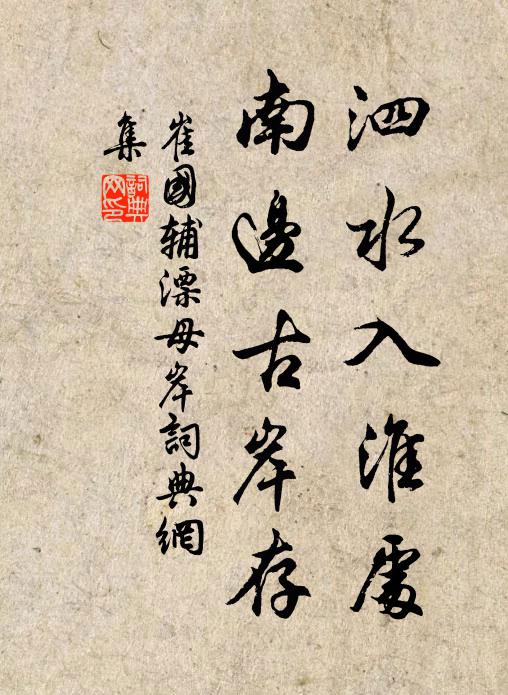 泗水入淮處
南邊古岸存
崔國輔漂母岸詞典網
集
詞典
网印